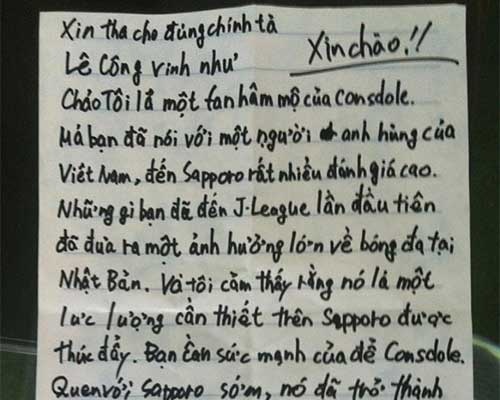 Xin tha cho đúng chính tà
Xin chào!!
Lê Công vinh như
Chảo Tôi lả một fan hâm mộ của Consdole.
Mà bạn đã nói với một người anh hùng của
Viêt Nam, đến Sapporo rất nhiều đánh giá cao.
Những gì bạn đã đến J-League lần đầu tiên
đã đưa ra một ảnh hưởng lớn về bóng đá tại
Nhật Bản. Và tôi cảm thấy rằng nó lả một
lưc lượng cần thiết trên Sapporo được
thúc đẩy. Bạn cần sức mạnh của để Consdole.
Quen với Sapporo sớm, nó đã trở thành